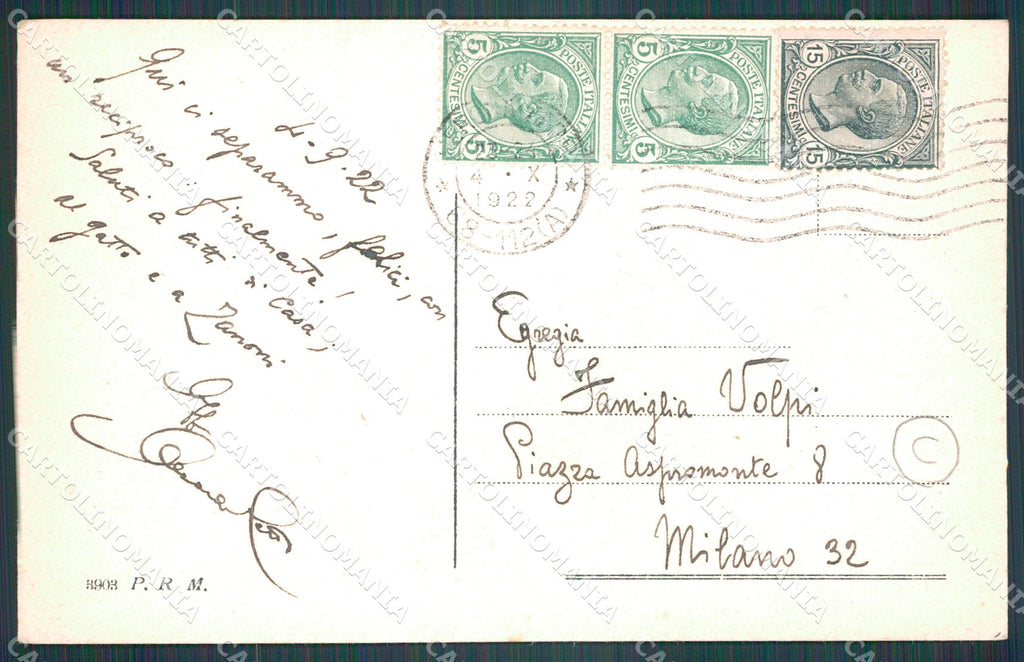 4-9.22
Qui ci separammo, felici, con
un reciproco finalmente!
Saluti a tutti di Casa,
al gatto e a Zanoni
Aff
Egregia
Famiglia Volpi
Piazza Aspromonte 8
Milano 32
C
3903 P. R. M.
POSTE ITALIANE
5 CENTESIMI 5
POSTE ITALIANE
5 CENTESIMI 5
POSTE ITALIANE
15 CENTESIMI 15
4 · X
1922
CARTOLINOMANIA